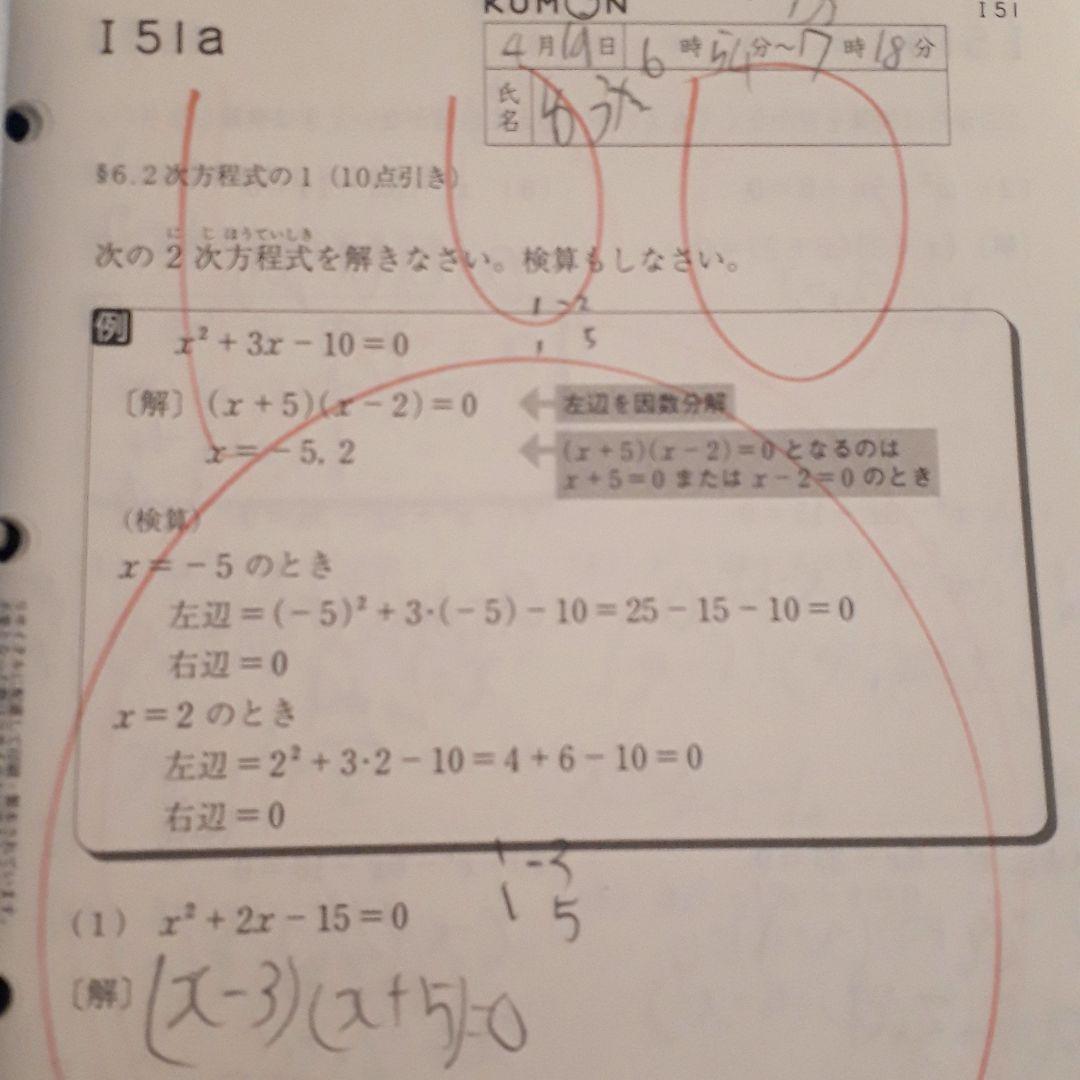 KUMON
I51
I51a
4月19日 6時54分～17時18分
氏名
§6.2次方程式の1（10点引き）
に じ ほうていしき
次の2次方程式を解きなさい。検算もしなさい。
1 -2
1 5
例
x² + 3x - 10 = 0
〔解〕 (x + 5)(x - 2) = 0 左辺を因数分解
x = -5, 2 (x + 5)(x - 2) = 0 となるのは
x + 5 = 0 または x - 2 = 0 のとき
（検算）
x = -5 のとき
左辺 = (-5)² + 3·(-5) - 10 = 25 - 15 - 10 = 0
右辺 = 0
x = 2 のとき
左辺 = 2² + 3·2 - 10 = 4 + 6 - 10 = 0
右辺 = 0
1 -3
1 5
(1) x² + 2x - 15 = 0
〔解〕 (x-3)(x+5)=0